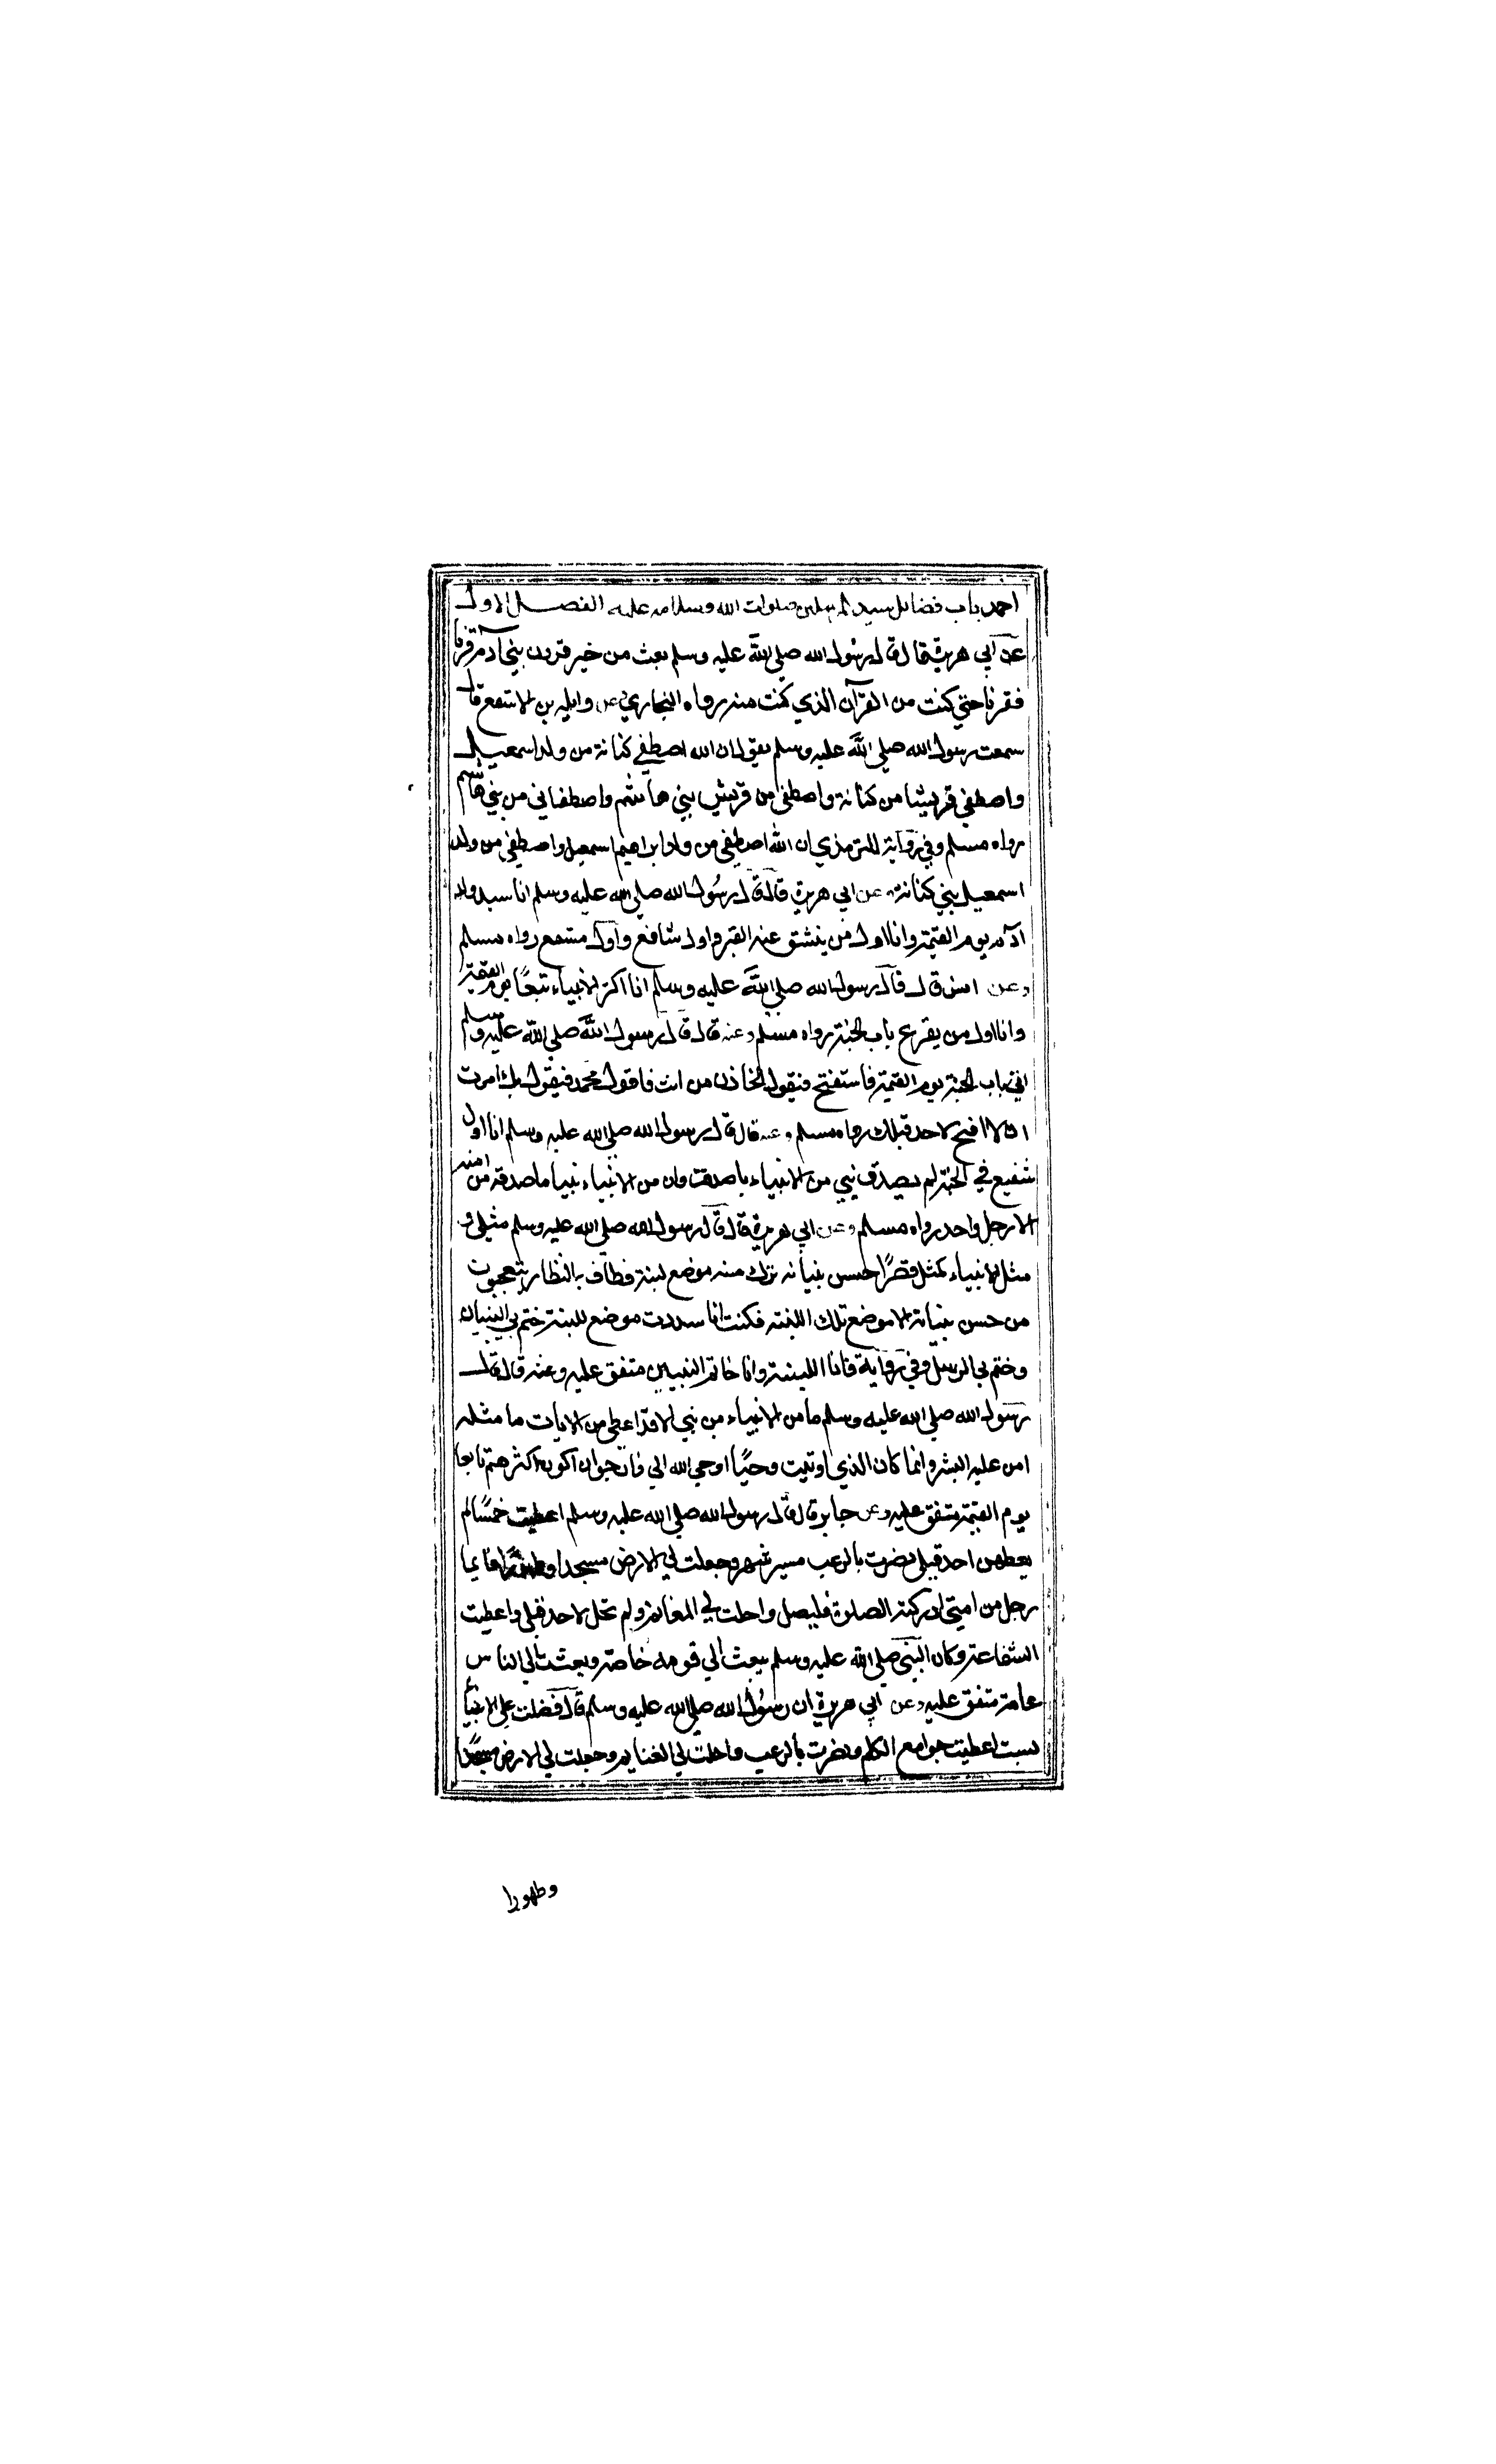 احمد باب فضائل سيد المرسلين صلوات الله وسلامه عليه الفصل الاول
عن ابي هريرة قال قال رسول الله صلي الله عليه وسلم بعثت من خير قرون بني آدم قرنا
فقرنا حتي كنت من القرآن الذي كنت منه رواه البخاري وعن واثلة بن الاسقع قال
سمعت رسول الله صلي الله عليه وسلم يقول ان الله اصطفي كنانة من ولد اسمعيل
واصطفي قريشا من كنانة واصطفي من قريش بني هاشم واصطفاني من بني هاشم
رواه مسلم وفي رواية للترمذي ان الله اصطفي من ولد ابراهيم اسمعيل واصطفي من ولد
اسمعيل بني كنانة وعن ابي هريرة قال قال رسول الله صلي الله عليه وسلم انا سيد ولد
آدم يوم القيمة وانا اول من ينشق عنه القبر واول شافع واول مشفع رواه مسلم
وعن انس قال قال رسول الله صلي الله عليه وسلم انا اكثر الانبياء تبعًا يوم القيمة
وانا اول من يقرع باب الجنة رواه مسلم وعنه قال قال رسول الله صلي الله عليه وسلم
اتي باب الجنة يوم القيمة فاستفتح فيقول الخازن من انت فاقول محمد فيقول بك امرت
ان لا افتح لاحد قبلك رواه مسلم وعنه قال قال رسول الله صلي الله عليه وسلم انا اول
شفيع في الجنة لم يصدق نبي من الانبياء ما صدقت وان من الانبياء نبيا ما صدقه من امته
الا رجل واحد رواه مسلم وعن ابي هريرة قال قال رسول الله صلي الله عليه وسلم مثلي و
مثل الانبياء كمثل قصرًا حسن بنيانه ترك منه موضع لبنة فطاف به النظار يتعجبون
من حسن بنيانه الا موضع تلك اللبنة فكنت انا سددت موضع اللبنة ختم بي البنيان
وختم بي الرسل وفي رواية فانا اللبنة وانا خاتم النبيين متفق عليه وعنه قال قال
رسول الله صلي الله عليه وسلم ما من الانبياء من نبي الا قد اعطي من الايات ما مثله
امن عليه البشر وانما كان الذي اوتيت وحيًا اوحي الله الي فارجوا ان اكون اكثرهم تابعا
يوم القيمة متفق عليه وعن جابر قال قال رسول الله صلي الله عليه وسلم اعطيت خمسًا لم
يعطهن احد قبلي نصرت بالرعب مسير شهر وجعلت لي الارض مسجدا وطهورًا فايما
رجل من امتي ادركته الصلوة فليصل واحلت لي المغانم ولم تحل لاحد قبلي واعطيت
الشفاعة وكان النبي صلي الله عليه وسلم يبعث الي قومه خاصة وبعثت الي الناس
عامة متفق عليه وعن ابي هريرة ان رسول الله صلي الله عليه وسلم قال فضلت علي الانبياء
بست اعطيت جوامع الكلم ونصرت بالرعب واحلت لي الغنايم وجعلت لي الارض مسجدًا
وطهورا